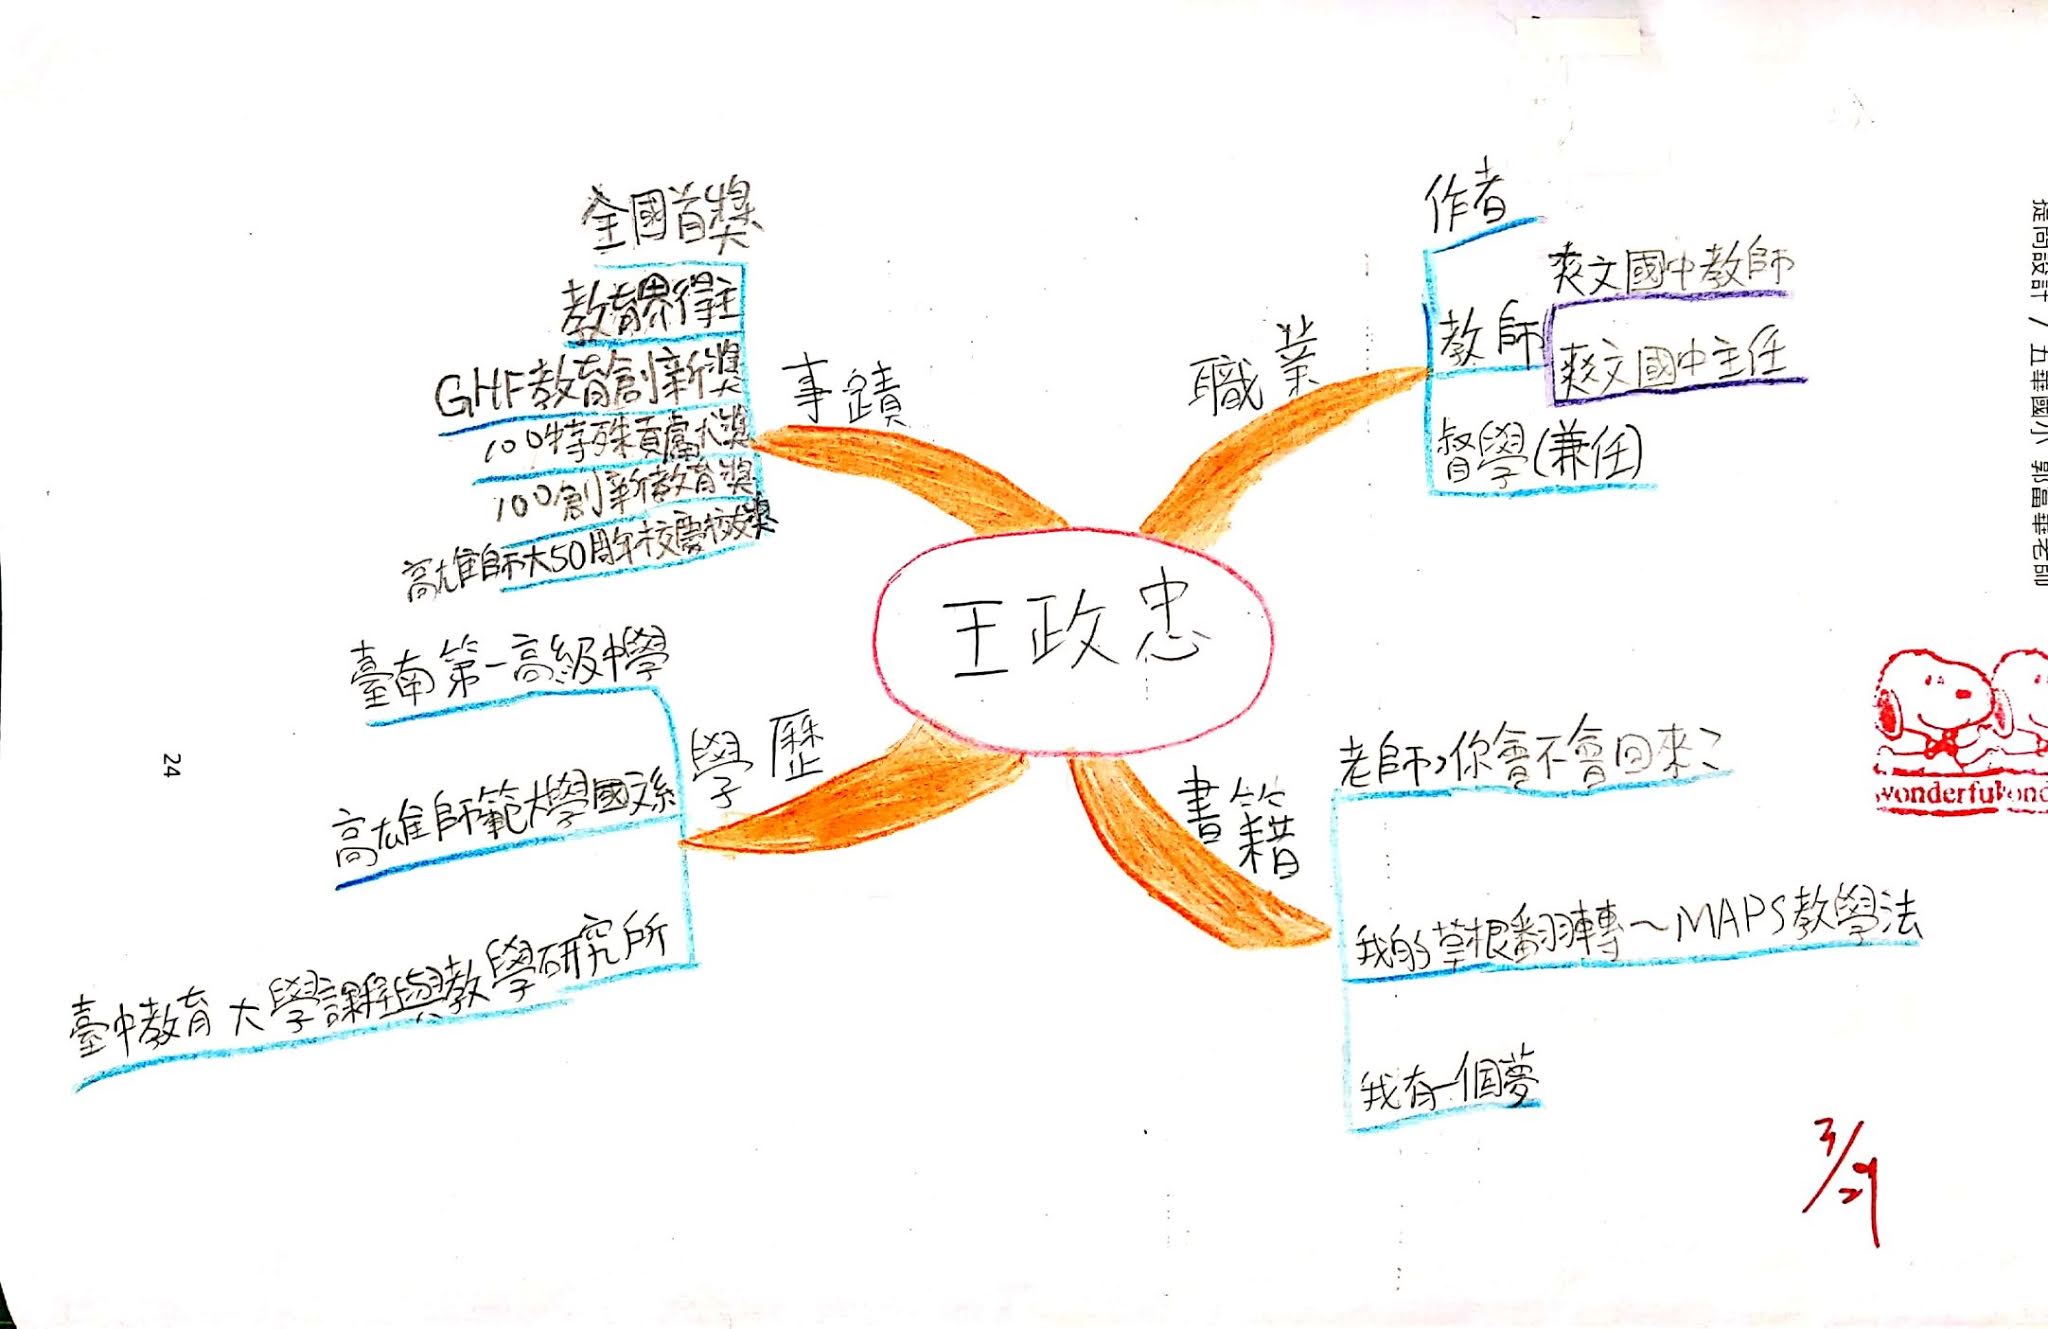 王政忠
職業
作者
教師
爽文國中教師
爽文國中主任
督學(兼任)
書籍
老師,你會不會回來?
我的草根翻轉~MAPS教學法
我有一個夢
學歷
臺南第一高級中學
高雄師範大學國文系
臺中教育大學課程與教學研究所
事蹟
全國首獎
教育界得主
GHF教育創新獎
100特殊貢獻大獎
100創新教育獎
高雄師大50周年校慶校友獎
24
提問設計 / 五華國小 郭富華老師
wonderful
3/29